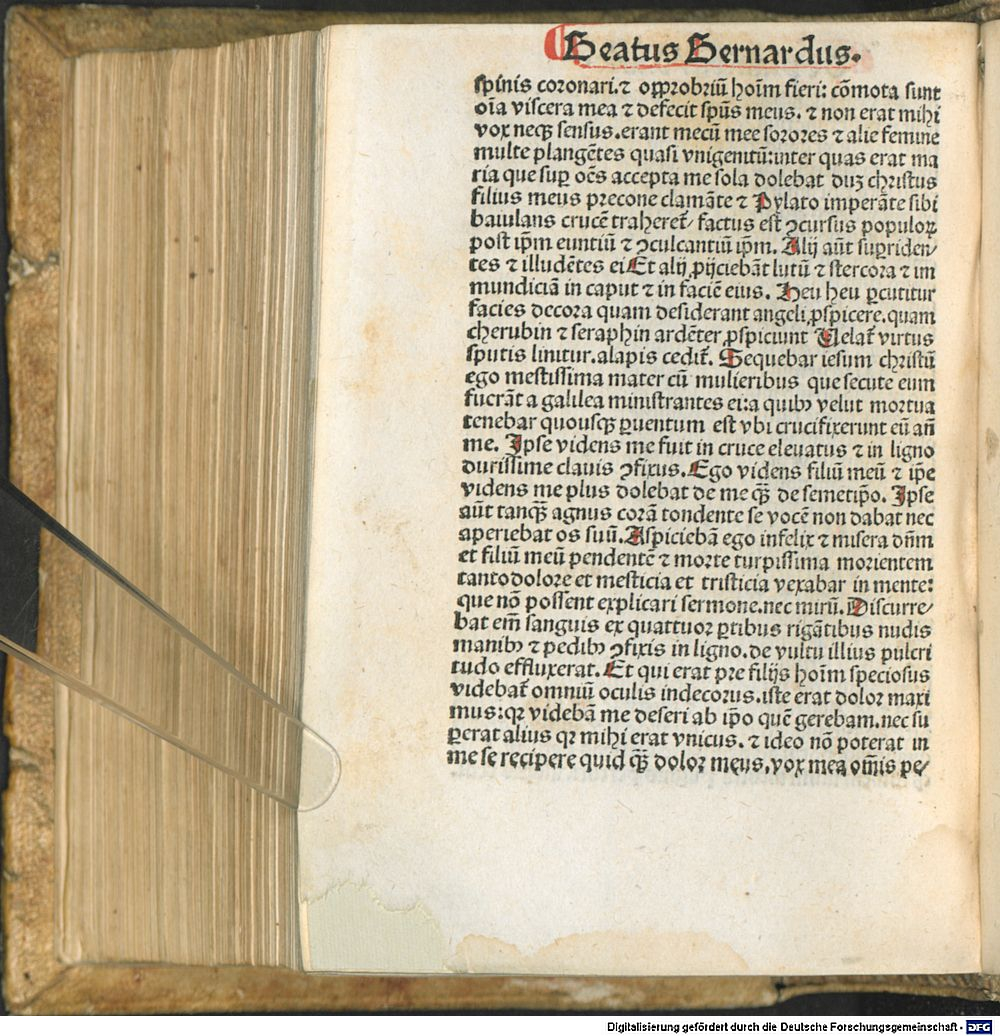 Beatus Bernardus.
spinis coronari.⁊ opprobriū hoīm fieri: cōmota sunt
oīa viscera mea ⁊ defecit spūs meus. ⁊ non erat mihi
vox neqꝫ sensus.erant mecū mee sorores ⁊ alie femine
multe plangētes quasi vnigenitū:inter quas erat ma
ria que suꝑ oēs accepta me sola dolebat duꝫ christus
filius meus precone clamāte ⁊ Pylato imperāte sibi
baiulans crucē traheret̄/ factus est ꝯcursus populoꝝ
post ip̄m euntiū ⁊ ꝯculcantiū ip̄m. Alij aūt suꝑriden/
tes ⁊ illudētes ei Et alij ꝓijciebāt lutū ⁊ stercora ⁊ im
mundiciā in caput ⁊ in faciē eius. Heu heu ꝑcutitur
facies decora quam desiderant angeli ꝓspicere.quam
cherubin ⁊ seraphin ardēter ꝓspiciunt Uelat̄ virtus
sputis linitur.alapis cedit̄. Sequebar iesum christū
ego mestissima mater cū mulieribus que secute eum
fuerāt a galilea ministrantes ei:a quibꝫ velut mortua
tenebar quousqꝫ ꝑuentum est vbi crucifixerunt eū añ
me. Ipse videns me fuit in cruce eleuatus ⁊ in ligno
durissime clauis ꝯfixus. Ego videns filiū meū ⁊ ip̄e
videns me plus dolebat de me qꝫ̄ de semetip̄o. Ipse
aūt tanqꝫ̄ agnus corā tondente se vocē non dabat nec
aperiebat os suū. Aspiciebā ego infelix ⁊ misera dñm
et filiū meū pendentē ⁊ morte turpissima morientem
tanto dolore et mesticia et tristicia vexabar in mente:
que nō possent explicari sermone.nec mirū. Discurre/
bat em̄ sanguis ex quattuor ꝑtibus rigātibus nudis
manibꝫ ⁊ pedibꝫ ꝯfixis in ligno.de vultu illius pulcri
tudo effluxerat. Et qui erat pre filijs hoīm speciosus
videbat̄ omniū oculis indecorus.iste erat dolor maxi
mus:qꝛ videbā me deseri ab ip̄o quē gerebam.nec su
ꝑerat alius qꝛ mihi erat vnicus. ⁊ ideo nō poterat in
me se recipere quid qꝫ̄ dolor meus.vox mea om̄is pe/
Digitalisierung gefördert durch die Deutsche Forschungsgemeinschaft - DFG